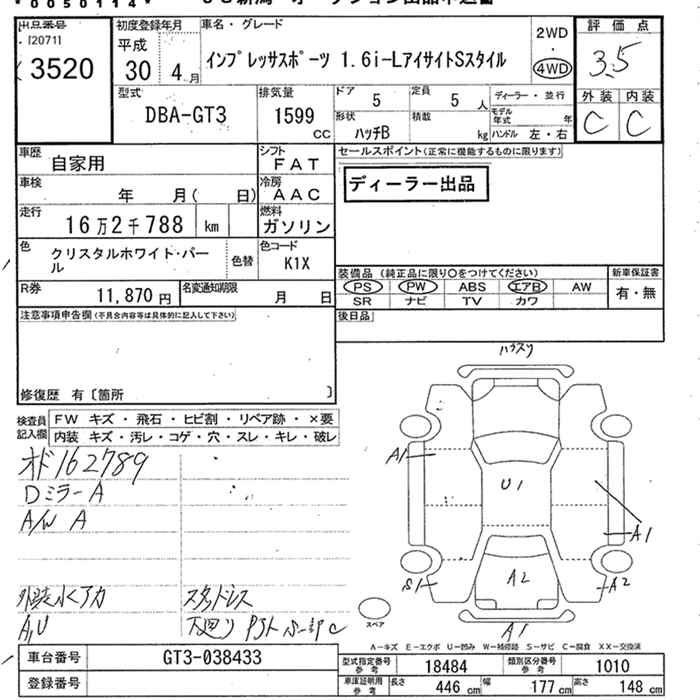 *0050114*
出品番号
120711
3520
初度登録年月
平成
30 4月
車名・グレード
インプレッサスポーツ 1.6i-LアイサイトSスタイル
2WD
・
4WD
評価点
3.5
型式
DBA-GT3
排気量
1599
CC
ドア
5
定員
5 人
形状
ハッチB
積載
kg
ディーラー・並行
モデル年式
年
ハンドル 左・右
外装 内装
C C
車歴
自家用
シフト
FAT
車検
年 月( 日)
冷房
AAC
走行
16万2千788 km
燃料
ガソリン
色
クリスタルホワイト・パール
色替
色コード
K1X
R券
11,870円
名変通知期限
月 日
セールスポイント(正常に機能するものに限ります)
ディーラー出品
装備品 (純正品に限り○をつけてください)
PS PW ABS エアB AW
SR ナビ TV カワ
新車保証書
有・無
注意事項申告欄(不具合内容等は具体的に記入して下さい)
後日品
修復歴 有〔箇所 〕
検査員記入欄
FW キズ・飛石・ヒビ割・リペア跡・×要
内装 キズ・汚レ・コゲ・穴・スレ・キレ・破レ
オド162789
Dミラー A
A/W A
外装水アカ
A,U
スタッドレス
下廻り
A1
U1
A1
S1
A2
A2
A1
スペア
A-キズ E-エクボ U-凹み W-補修跡 S-サビ C-腐食 XX-交換済
車台番号
GT3-038433
登録番号
型式指定番号
参考
18484
類別区分番号
参考
1010
車庫証明用
参考
長さ 446 cm
幅 177 cm
高さ 148 cm